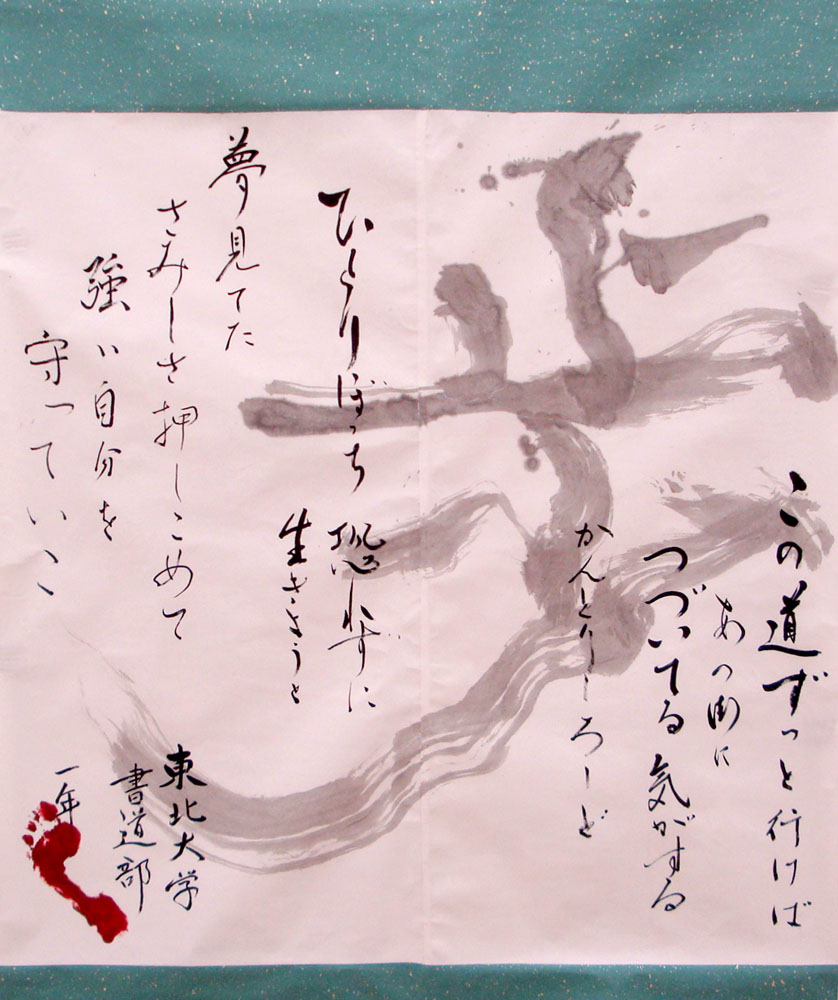 歩
この道ずっと行けば
あの街に
つづいてる気がする
かんとりーろーど
ひとりぼっち恐れずに
生きようと
夢見てた
さみしさ押しこめて
強い自分を
守っていこ
東北大学
書道部
一年